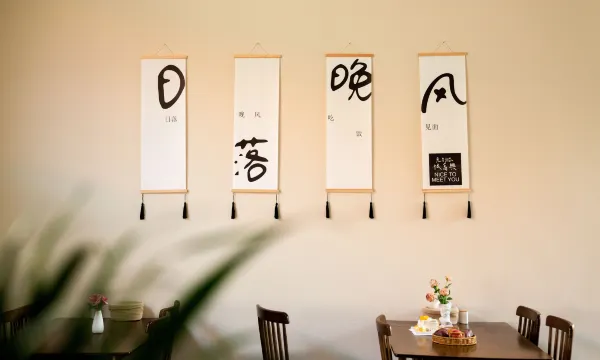 日
日落
晚 风
落
晚
吃
饭
风
见面
NICE TO
MEET YOU